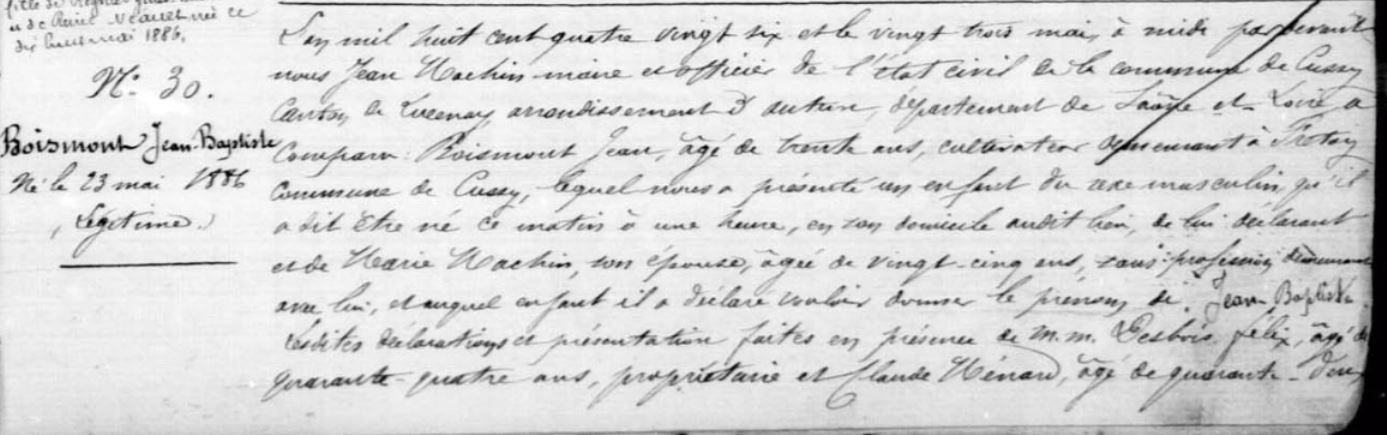 née ce
dix huit mai 1886.
N° 30.
Boismont Jean-Baptiste
Né le 23 mai 1886
(Légitime.)
L'an mil huit cent quatre vingt six et le vingt trois mai, à midi par devant
nous Jean Machin maire et officier de l'état civil de la commune de Cussy
Canton de Lucenay arrondissement d'autun, département de Saône et Loire a
Comparu: Boismont Jean, âgé de trente ans, cultivateur demeurant à
Commune de Cussy, lequel nous a présenté un enfant du sexe masculin, qu'il
a dit être né ce matin à une heure, en son domicile audit lieu, de lui déclarant
et de Marie Machin, son épouse, âgée de vingt-cinq ans, sans profession demeurant
avec lui, et auquel enfant il a déclaré vouloir donner le prénom de Jean-Baptiste.
Lesdites déclarations et présentation faites en présence de m.m. Desbois félix, âgé de
quarante-quatre ans, propriétaire et Claude Ménard, âgé de quarante-deux